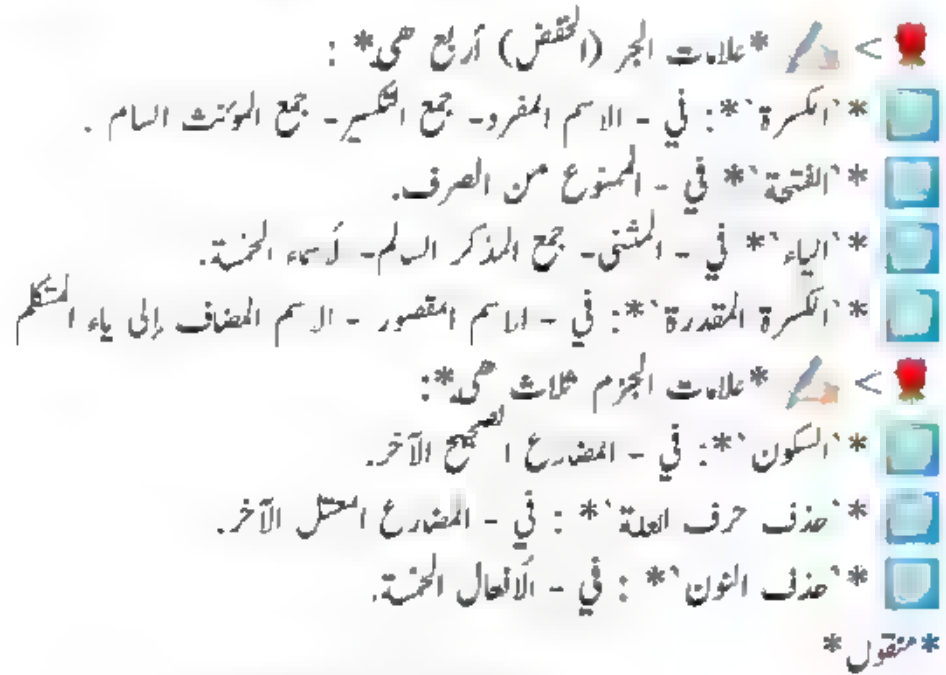 > *علامت الجر (الخفض) أربع هى* :
*`الكسرة`*: في - الاسم المفرد- جمع التكسير- جمع المؤنث السام .
*`الفتحة`* في - الممنوع من الصرف.
*`الياء`* في - المثنى- جمع المذكر السالم- لأسماء الخمسة.
*`الكسرة المقدرة`*: في - الاسم المقصور - الاسم المضاف إلى ياء المتكلم
> *علامت الجزم ثلاث هى*:
*`السكون`*: في - المضارع الصحيح الآخر.
*`حذف حرف العلة`* : في - المضارع المعتل الآخر.
*`حذف النون`* : في - الأفعال الخمسة.
*منقول*